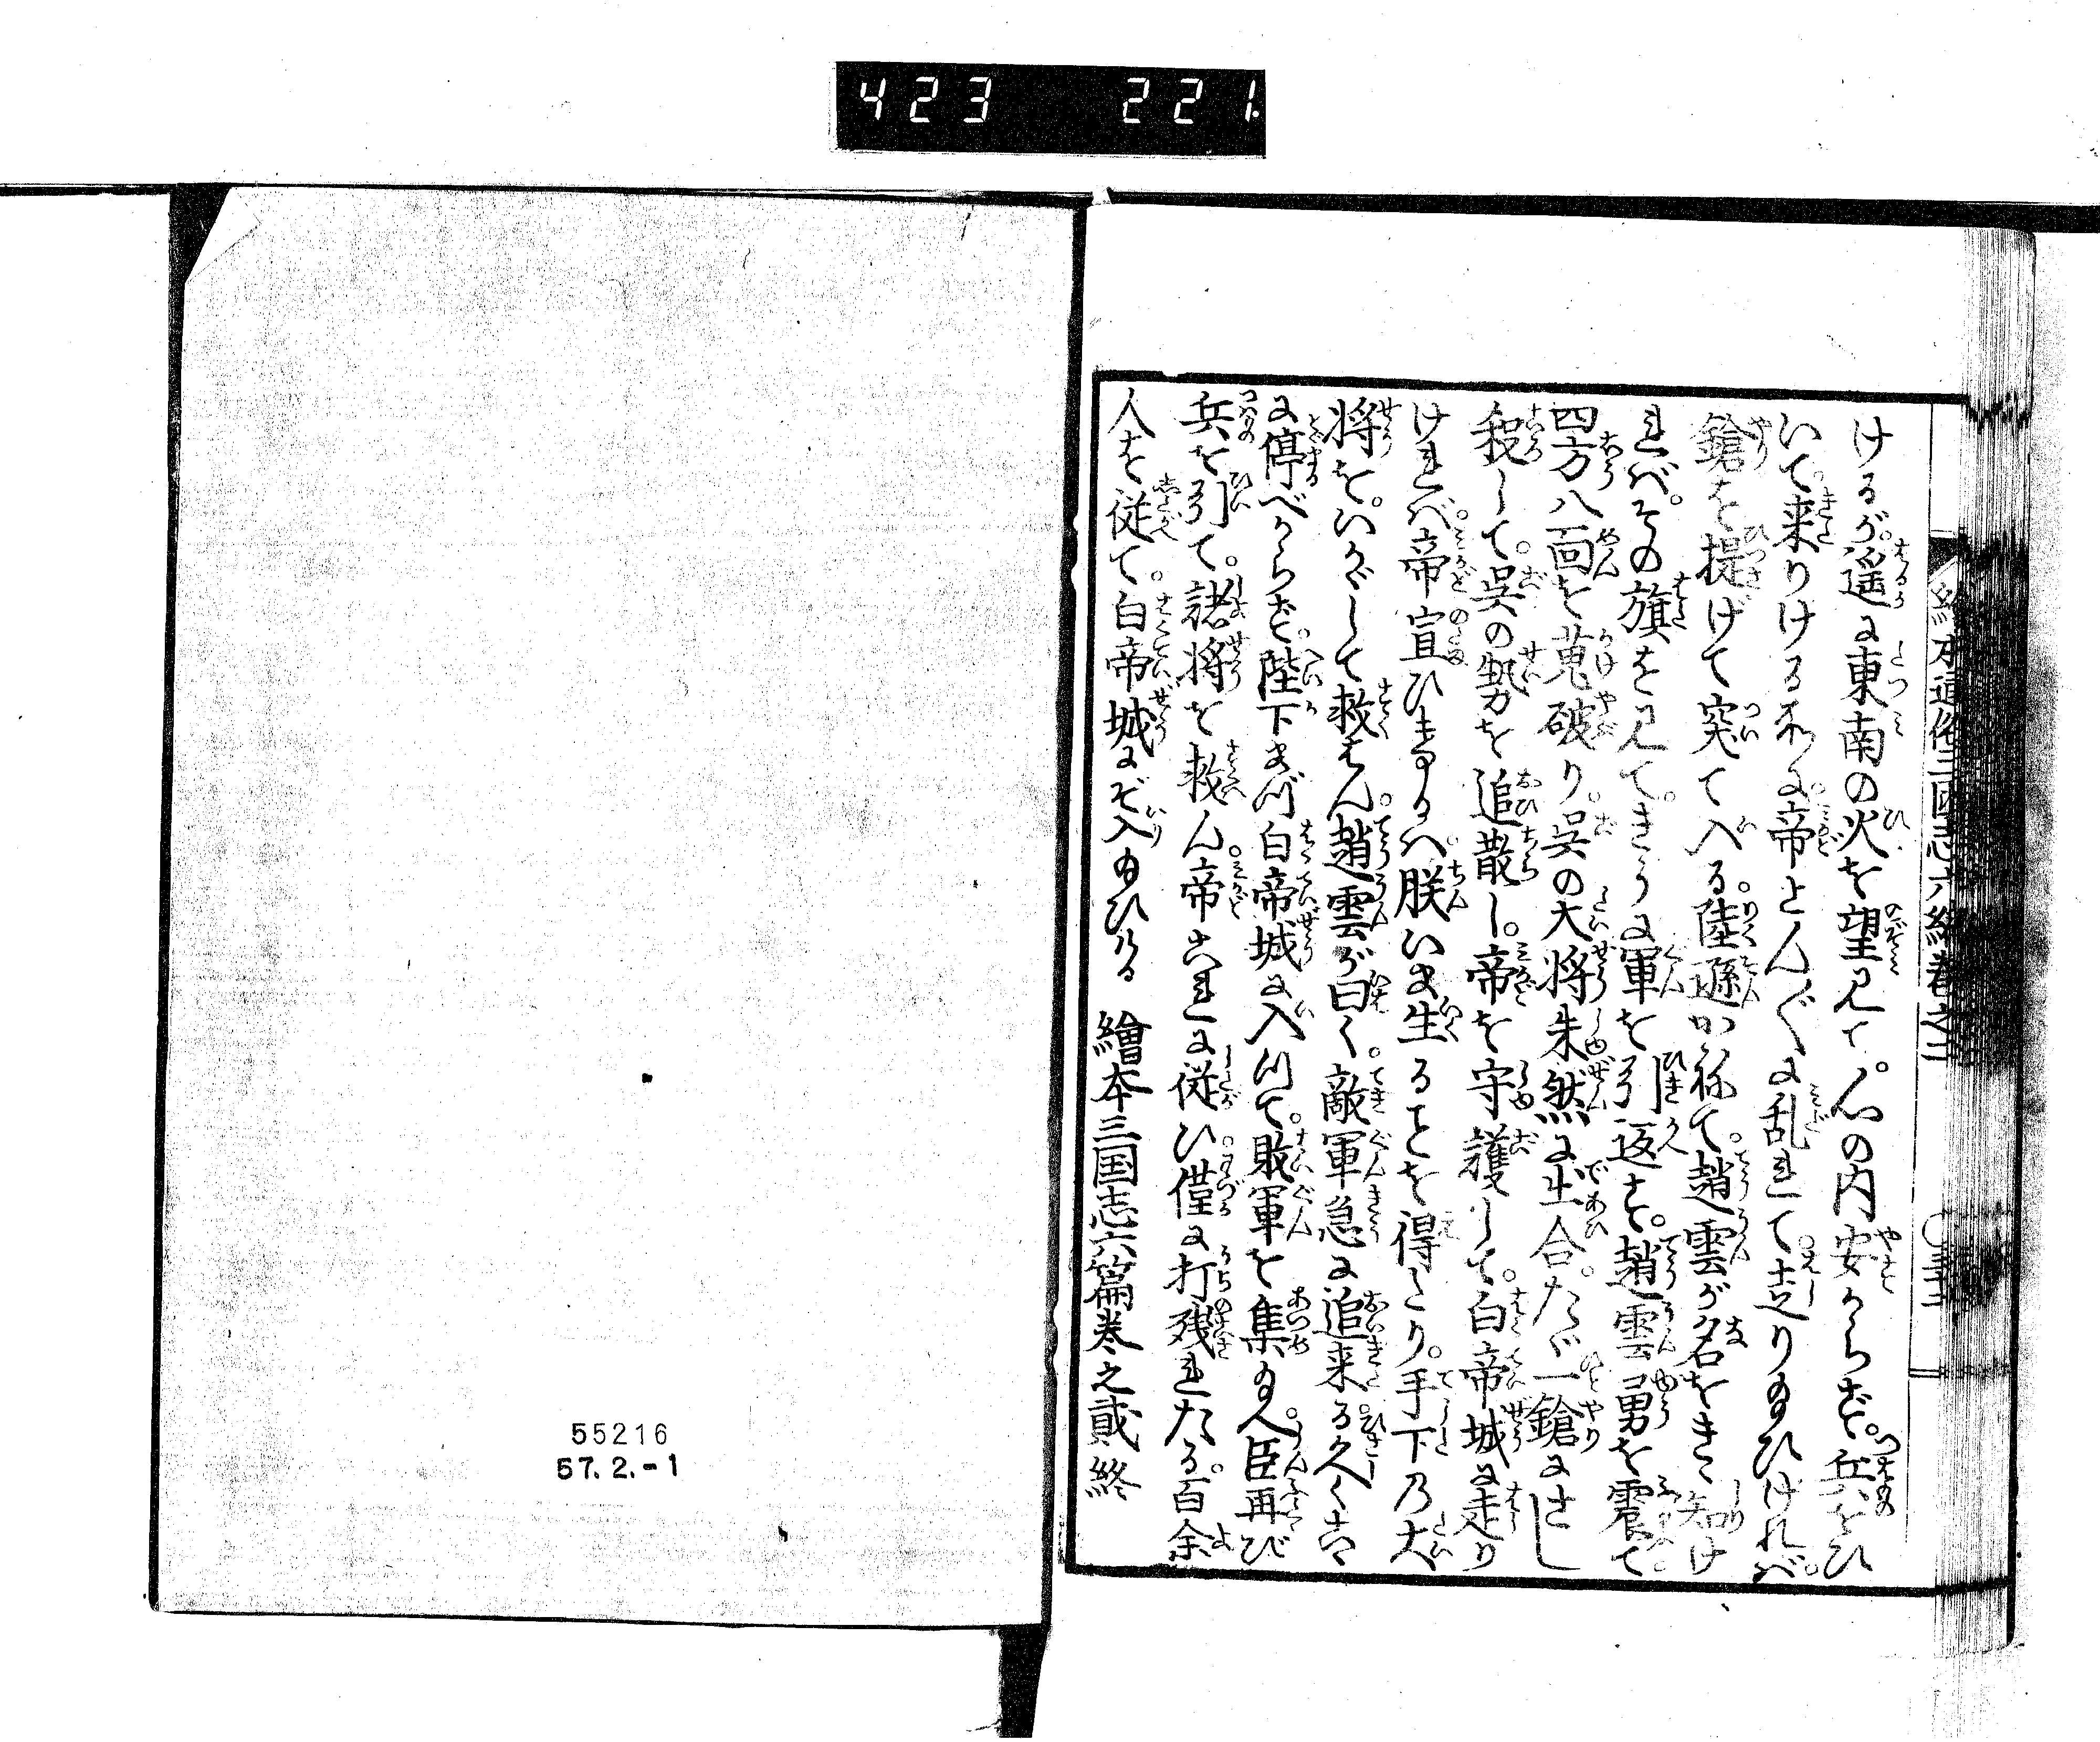 423 221
繪本通俗三国志六編巻之二
けるが。遥に東南の火を望見て。心の内安からず。兵をひ
いて。来りける所に。帝さんぐに乱れて。走り給ひければ。
鎗を提げて突て入る。陸遜かねて。趙雲が名をきゝ知け
れば。その旗を見て。きうに軍を引返す。趙雲勇を震て。
四方八面を蒐破り。呉の大将朱然に出合。たゞ一鎗にさし
殺して。呉の勢を追散し。帝を守護して。白帝城に走り
ければ。帝宣ひけるは。朕いま生ることを得たり。手下乃大
将を。いかゞして救はん。趙雲が曰く。敵軍急に追来る。久くこゝ
に停べからず。陛下まづ白帝城に入て。敗軍を集給へ。臣再び
兵を引て。諸将を救ん。帝これに従ひ。僅に打残れたる。百余
人を従て。白帝城にぞ入給ひける 繪本三国志六篇巻之貳終
55216
57.2.-1